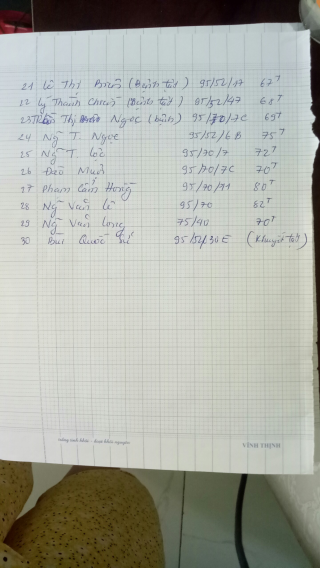 21 Lê Thị Bưởi (Bệnh tật) 95/52/17 67T
22 Lý Thành Chiến (Bệnh tật) 95/52/47 68T
23 Thị Ngọc (bệnh) 95/70/7C 65T
24 Ng̃ T. Ngọc 95/52/6B 75T
25 Ng̃ T. Lộc 95/70/7 72T
26 Đào Mười 95/70/7C 70T
27 Phạm Cẩm Hồng 95/70/71 80T
28 Ng̃ Văn Lê 95/70 82T
29 Ng̃ Văn Long 75/40 70T
30 Bùi Quốc 95/52/30E (Khuyết tật)
VĨNH THỊNH